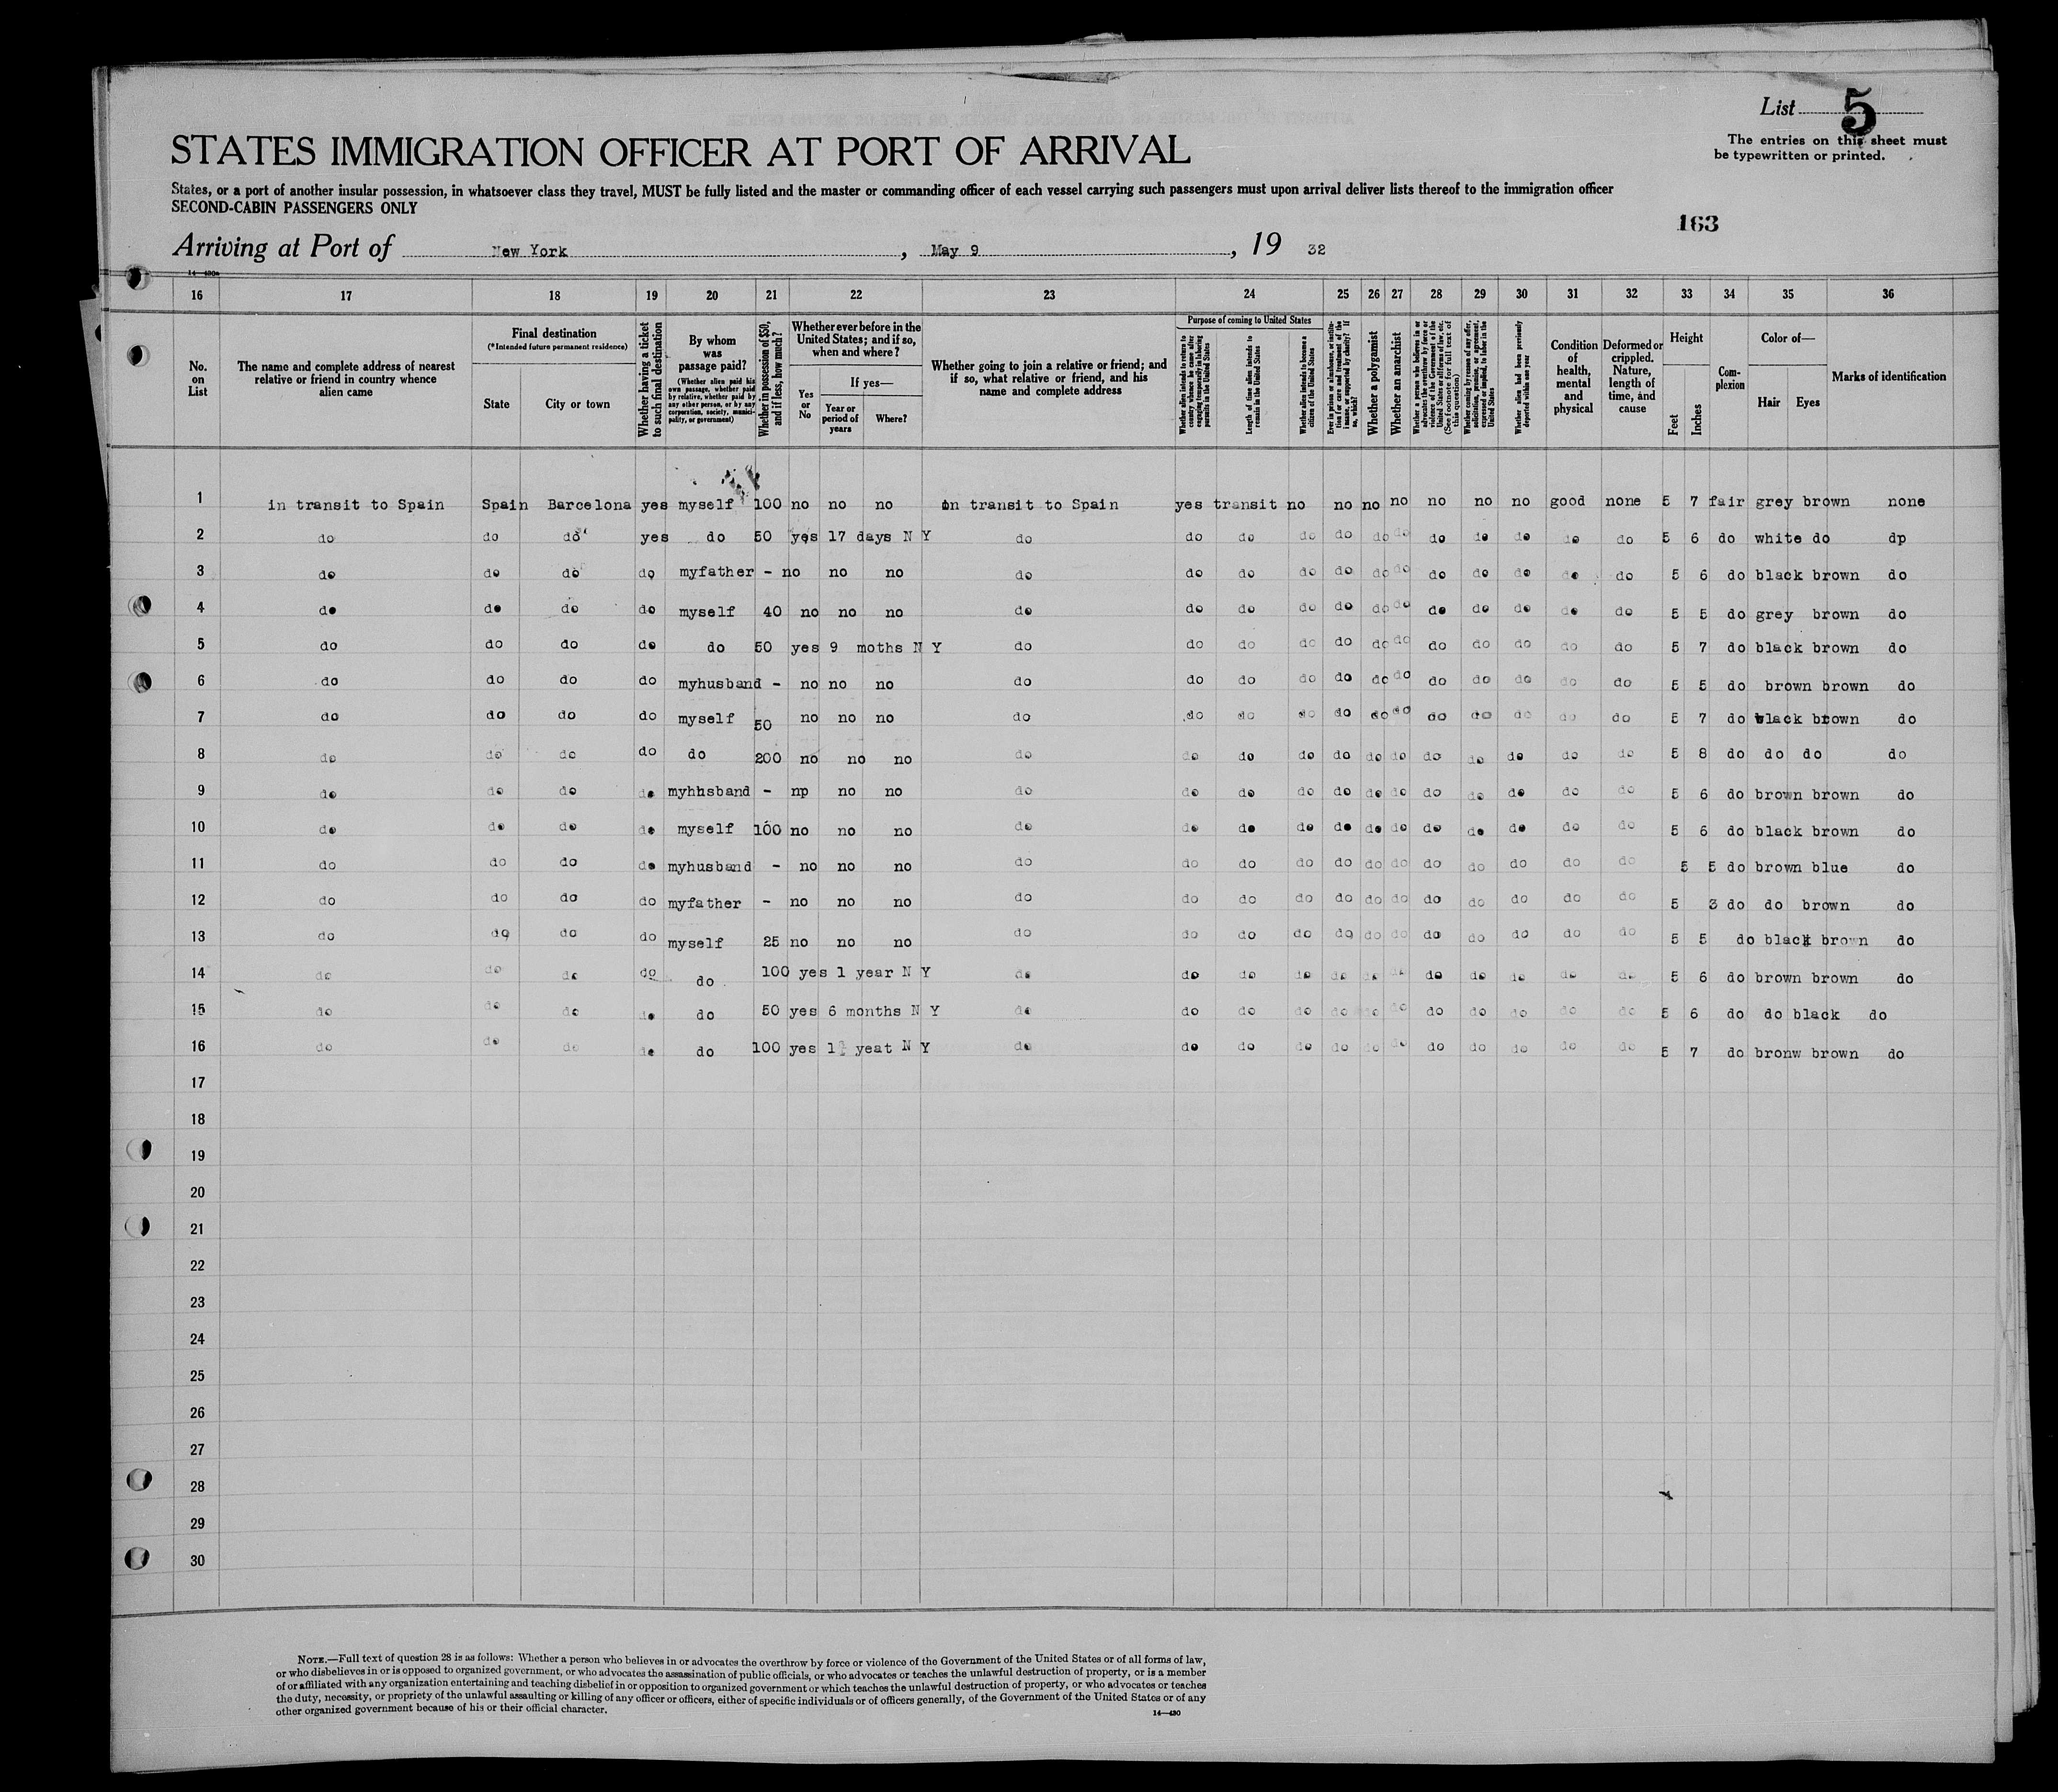 List 5
The entries on this sheet must
be typewritten or printed.
STATES IMMIGRATION OFFICER AT PORT OF ARRIVAL
States, or a port of another insular possession, in whatsoever class they travel, MUST be fully listed and the master or commanding officer of each vessel carrying such passengers must upon arrival deliver lists thereof to the immigration officer
SECOND-CABIN PASSENGERS ONLY
163
Arriving at Port of New York, May 9, 19 32
14—430a
16 17 18 19 20 21 22 23 24 25 26 27 28 29 30 31 32 33 34 35 36
No. on List
The name and complete address of nearest relative or friend in country whence alien came
Final destination
(*Intended future permanent residence)
State
City or town
Whether having a ticket to such final destination
By whom was passage paid?
(Whether alien paid his own passage, whether paid by relative, whether paid by any other person, or by any corporation, society, municipality, or government)
Whether in possession of $50, and if less, how much?
Whether ever before in the United States; and if so, when and where?
Yes or No
If yes—
Year or period of years
Where?
Whether going to join a relative or friend; and if so, what relative or friend, and his name and complete address
Purpose of coming to United States
Whether alien intends to return to country whence he came after engaging temporarily in laboring pursuits in the United States
Length of time alien intends to remain in the United States
Whether alien intends to become a citizen of the United States
Ever in prison or almshouse, or institution for care and treatment of the insane, or supported by charity? If so, which?
Whether a polygamist
Whether an anarchist
Whether a person who believes in or advocates the overthrow by force or violence of the Government of the United States or all forms of law, etc. (See footnote for full text of this question)
Whether coming by reason of any offer, solicitation, promise, or agreement, expressed or implied, to labor in the United States
Whether alien had been previously deported within one year
Condition of health, mental and physical
Deformed or crippled. Nature, length of time, and cause
Height
Feet
Inches
Complexion
Color of—
Hair Eyes
Marks of identification
1 in transit to Spain Spain Barcelona yes myself 100 no no no in transit to Spain yes transit no no no no no no no good none 5 7 fair grey brown none
2 do do do yes do 50 yes 17 days N Y do do do do do do do do do do do do 5 6 do white do dp
3 do do do do myfather - no no no do do do do do do do do do do do do 5 6 do black brown do
4 do do do do myself 40 no no no do do do do do do do do do do do do 5 5 do grey brown do
5 do do do do do 50 yes 9 moths N Y do do do do do do do do do do do do 5 7 do black brown do
6 do do do do myhusband - no no no do do do do do do do do do do do do 5 5 do brown brown do
7 do do do do myself 50 no no no do do do do do do do do do do do do 5 7 do black brown do
8 do do do do do 200 no no no do do do do do do do do do do do do 5 8 do do do do
9 do do do do myhhsband - np no no do do do do do do do do do do do do 5 6 do brown brown do
10 do do do do myself 100 no no no do do do do do do do do do do do do 5 6 do black brown do
11 do do do do myhusband - no no no do do do do do do do do do do do do 5 5 do brown blue do
12 do do do do myfather - no no no do do do do do do do do do do do do 5 3 do do brown do
13 do do do do myself 25 no no no do do do do do do do do do do do do 5 5 do black brown do
14 do do do do do 100 yes 1 year N Y do do do do do do do do do do do do 5 6 do brown brown do
15 do do do do do 50 yes 6 months N Y do do do do do do do do do do do do 5 6 do do black do
16 do do do do do 100 yes 1½ yeat N Y do do do do do do do do do do do do 5 7 do bronw brown do
17
18
19
20
21
22
23
24
25
26
27
28
29
30
NOTE.—Full text of question 28 is as follows: Whether a person who believes in or advocates the overthrow by force or violence of the Government of the United States or of all forms of law,
or who disbelieves in or is opposed to organized government, or who advocates the assassination of public officials, or who advocates or teaches the unlawful destruction of property, or is a member
of or affiliated with any organization entertaining and teaching disbelief in or opposition to organized government or which teaches the unlawful destruction of property, or who advocates or teaches
the duty, necessity, or propriety of the unlawful assaulting or killing of any officer or officers, either of specific individuals or of officers generally, of the Government of the United States or of any
other organized government because of his or their official character.
14—430